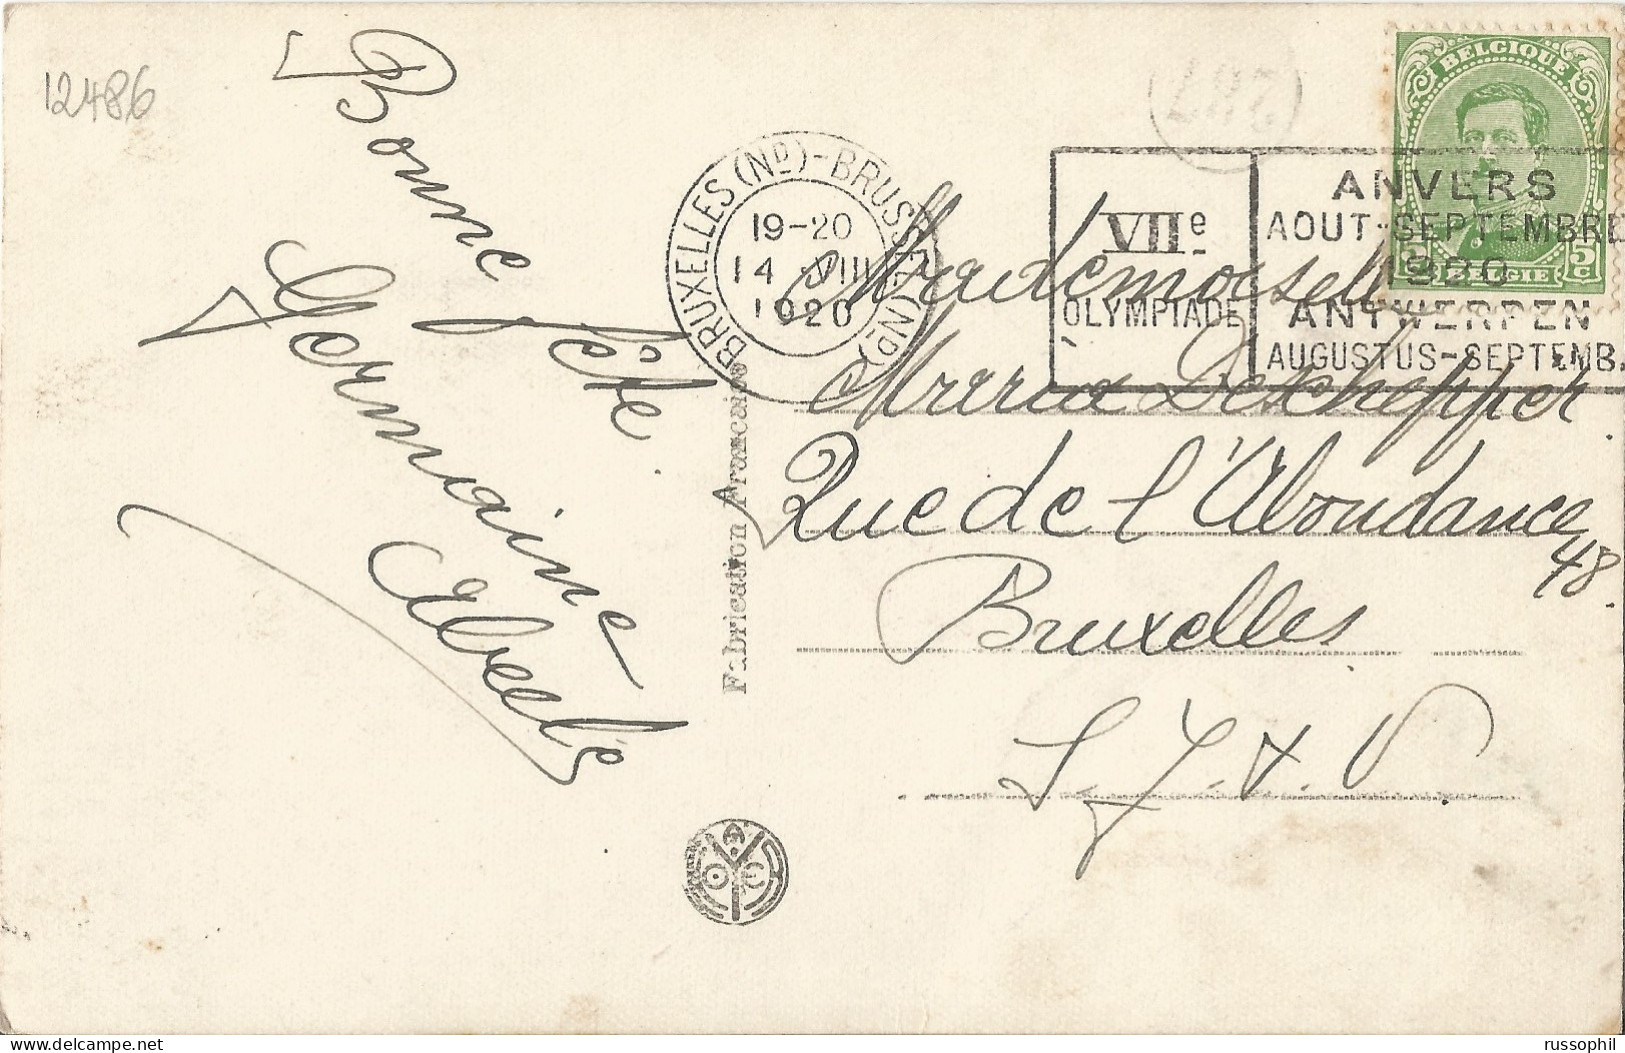 12486
Bonne fête.
Germaine
Abeels
Fabrication Française
BRUXELLES (ND) - BRUSSEL (ND)
19-20
14 VIII
1920
VIIe
OLYMPIADE
ANVERS
AOUT-SEPTEMBRE
1920
ANTWERPEN
AUGUSTUS-SEPTEMB.
BELGIQUE
5c 5c
BELGIE
Mademoiselle
Maria Deschepper.
Rue de l'Abondance
48.
Bruxelles
russophil
delcampe.net